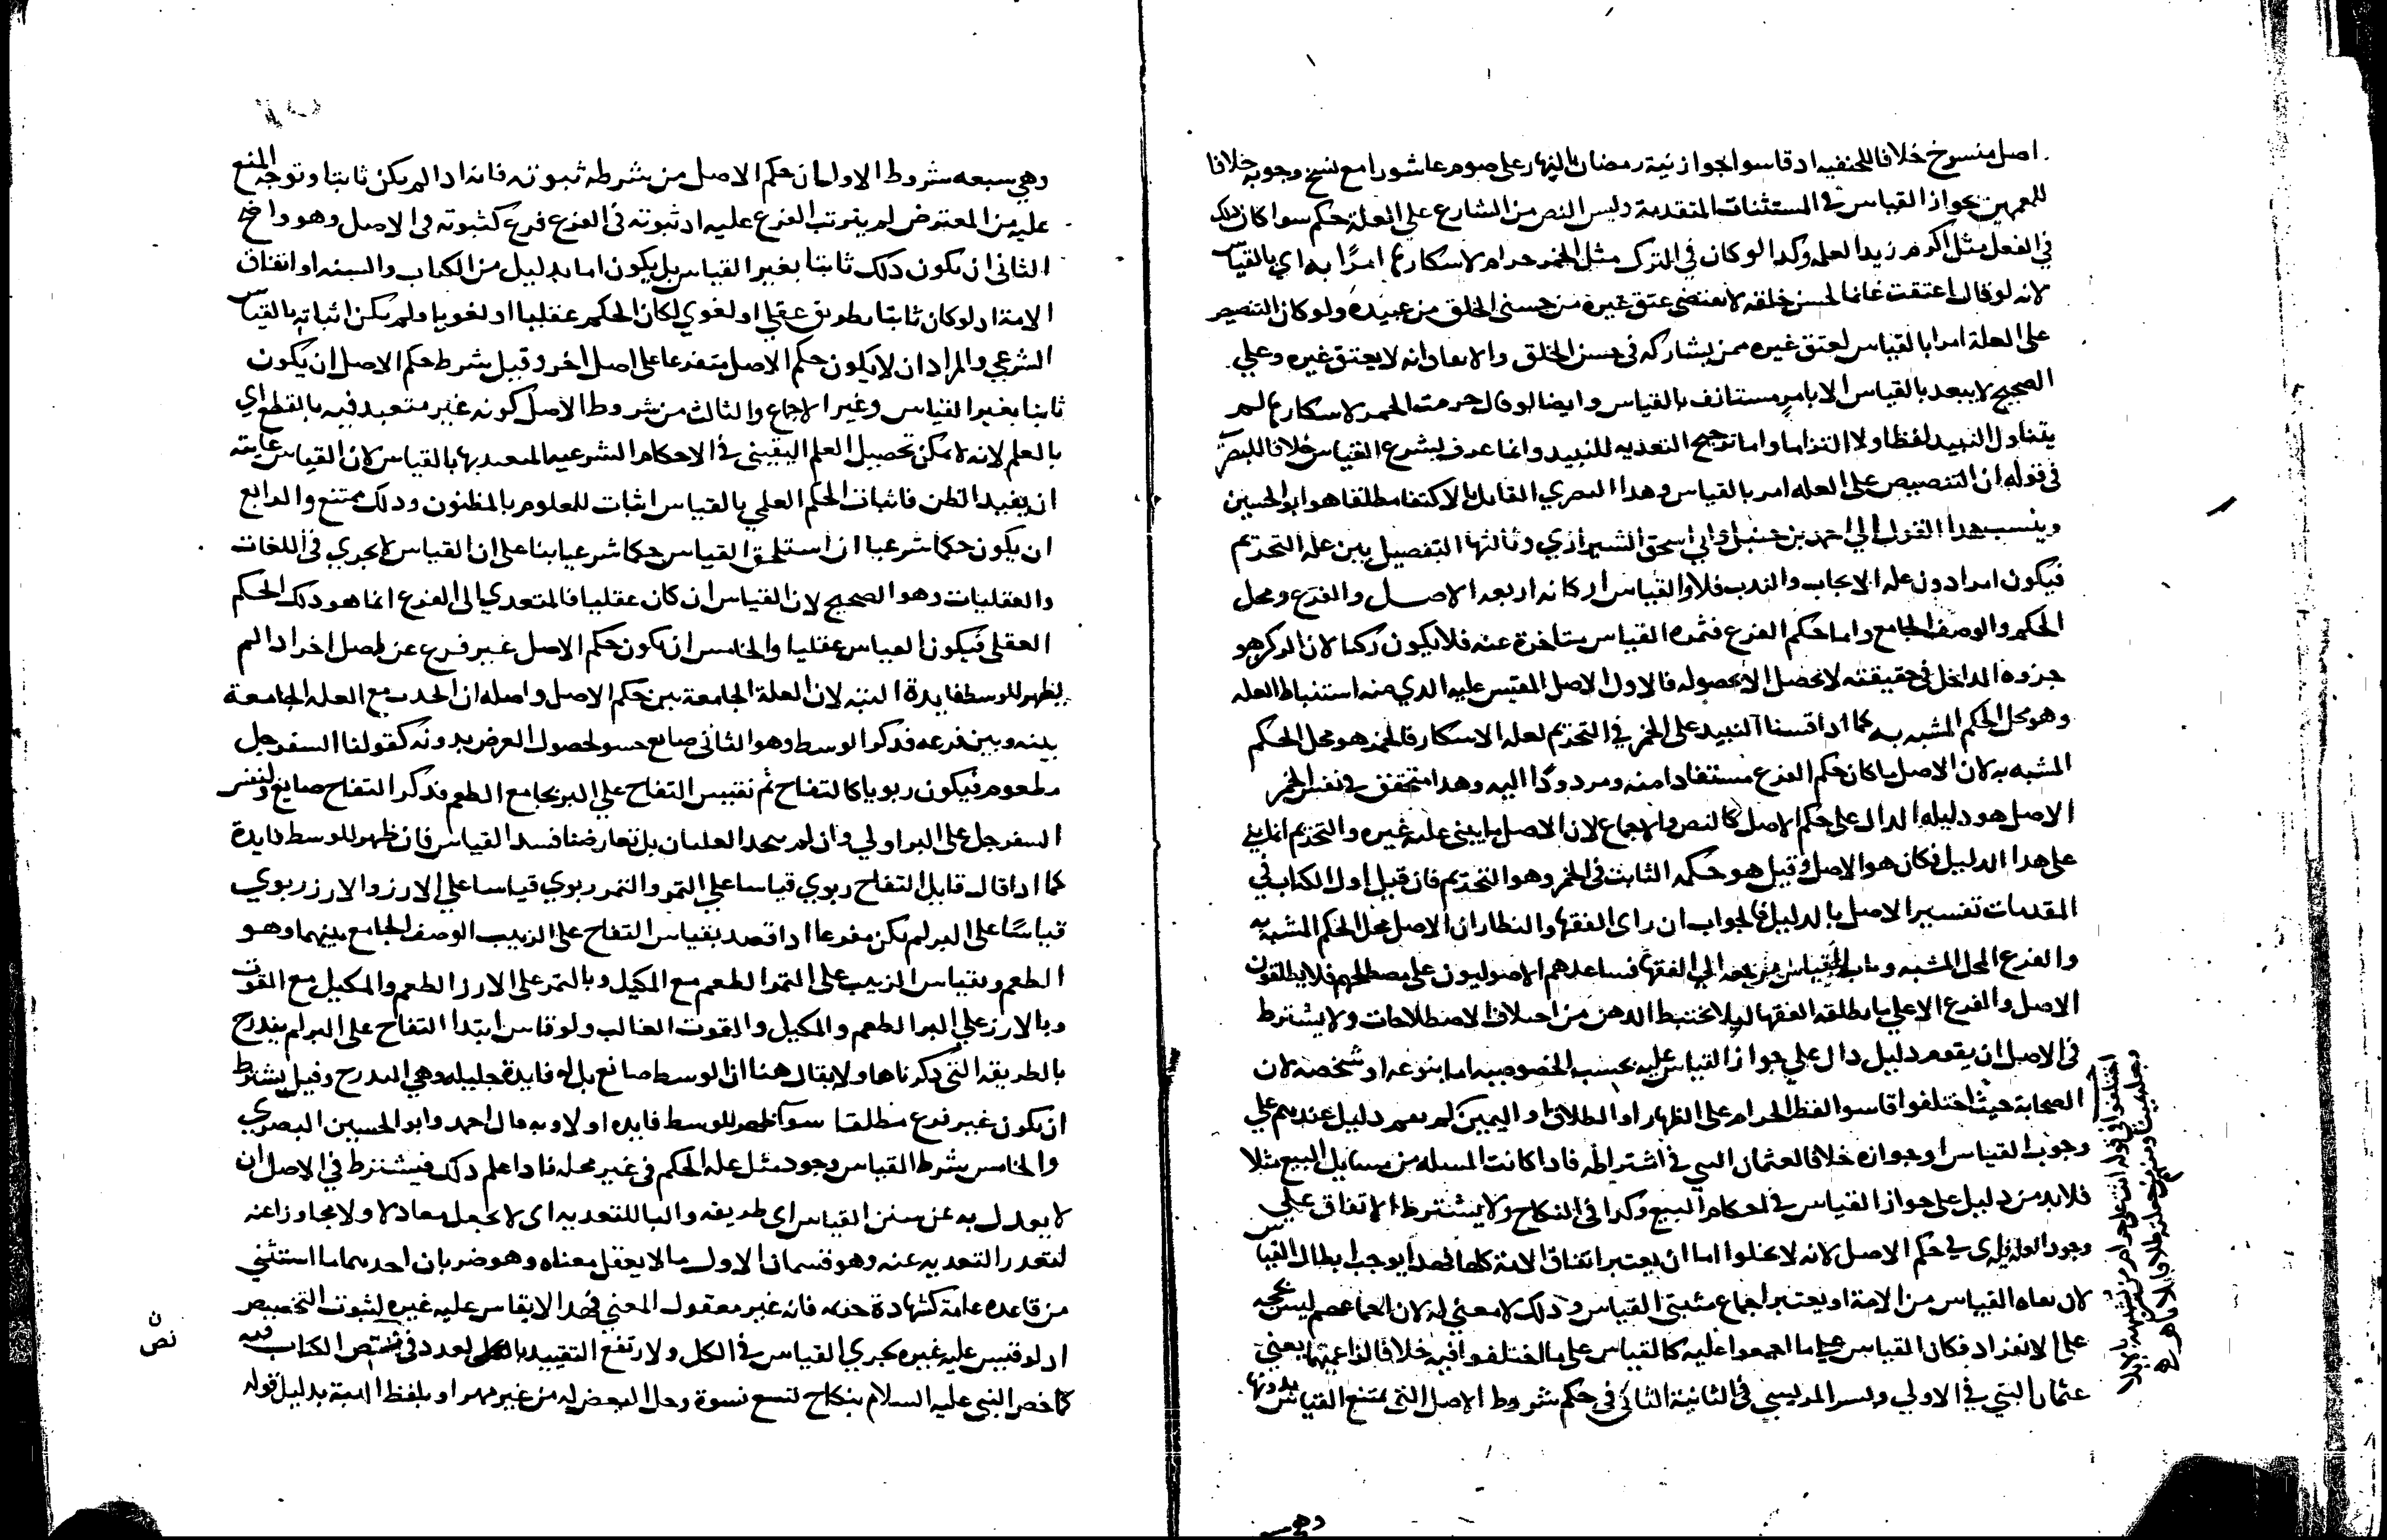 اصل منسوخ خلافا للحنفيه اد قاسوا جواز نية رمضان بالنهار على صوم عاشورا مع نسخ وجوبه خلافا
للمعممين بجواز القياس في المستثنات المتقدمة وليس النص من الشارع على العلة حكم سوا كان دلك
في الفعل مثل اكرم زيدا لعلمه وكدا لو كان في الترك مثل الخمر حرام لاسكارها امرًا به اي بالقياس
لانه لو قال اعتقت غانما لحسن خلقه لا يقتضى عتق غيره من حسنى الخلق من عبيده ولو كان التنصيص
على العلة امرا بالقياس لعتق غيره ممن يشاركه فى حسن الخلق والاتفاق انه لا يعتق غيره وعلي
الصحيح لا يبعد بالقياس الا بامرٍ مستانف بالقياس وايضا لو قال حرمت الخمر لاسكارها لم
يتناول النبيد لفظا ولا التزاما واما ترجيح التعديه للنبيد وانما عرف بشرع القياس خلافا للبصري
فى قوله ان التنصيص على العله امر بالقياس وهدا البصري القايل بالاكتفا مطلقا هو ابو الحسين
وينسب هدا القول الي احمد بن حنبل وابي اسحق الشيرازي وثالثها التفصيل بين علة التحريم
فيكون امرا دون علة الايجاب والندب فلا والقياس اركانه اربعه الاصل والفرع ومحل
الحكم والوصف الجامع واما حكم الفرع فثمرة القياس متاخرة عنه فلا يكون ركنا لان الركن هو
جزوه الداخل في حقيقته لا تحصل الا بحصوله فالاول الاصل المقيس عليه الدي منه استنباط العله
وهو محل الحكم المشبه به كما ادا قسنا النبيد على الخمر في التحريم لعلة الاسكار فالخمر هو محل الحكم
المشبه به لان الاصل ما كان حكم الفرع مستفادا منه ومردودًا اليه وهدا متحقق في نفس الخمر
الاصل هو دليله الدال على حكم الاصل كالنص والاجماع لان الاصل ما يبنى عليه غيره والتحريم انما بني
على هدا الدليل فكان هو الاصل وقيل هو حكمه الثابت فى الخمر وهو التحريم فان قيل اول الكتاب في
المقدمات تفسير الاصل بالدليل فالجواب ان راى الفقها والنظار ان الاصل محل الحكم المشبه به
والفرع المحل المشبه وباب القياس مرجعه الي الفقها فساعدهم الاصوليون على مصطلحهم فلا يطلقون
الاصل والفرع الا علي ما يطلقه الفقها ليلا يختبط الدهن من اختلاف الاصطلاحات ولا يشترط
فى الاصل ان يقوم دليل دال علي جواز القياس عليه بحسب الخصوصيه اما بنوعه او شخصه لان
الصحابة حيث اختلفوا قاسوا لفظ الحرام على الظهار او الطلاق او اليمين لم يقم دليل عندهم علي
وجوب القياس او جوازه خلافا لعثمان البتي في اشتراطه فادا كانت المسله من مسايل البيع مثلا
فلا بد من دليل على جواز القياس في احكام البيع وكدا فى النكاح ولا يشترط الاتفاق علي
وجود العله في حكم الاصل لانه لا يخلوا اما ان يعتبر اتفاق الامة كلها فهدا يوجب ابطال القياس
لان نفاه القياس من الامة او يعتبر اجماع مثبتي القياس ودلك لا معني له لان اجماعهم ليس بحجه
على الانفراد فكان القياس علي ما اجمعوا عليه كالقياس على ما اختلفوا فيه خلافا لزاعميها يعني
عثمان البتي في الاولي وبشر المريسي فى الثانية الثاني في حكم شروط الاصل التى يمتنع القياس بدونها
وهي
وهي سبعه شروط الاول ان حكم الاصل من شرطه ثبوته فانه ادا لم يكن ثابتا وتوجه المنع
عليه من المعترض لم يترتب الفرع عليه اد ثبوته في الفرع فرع كثبوته فى الاصل وهو واضح
الثانى ان يكون دلك ثابتا بغير القياس بل يكون اما بدليل من الكتاب والسنه او اتفاق
الامة اد لو كان ثابتا بطريق عقلي او لغوي لكان الحكم عقليا او لغويا ولم يكن اثباته بالقياس
الشرعي والمراد ان لا يكون حكم الاصل متفرعا على اصل اخر وقيل شرط حكم الاصل ان يكون
ثابتا بغير القياس وغير الاجماع والثالث من شروط الاصل كونه غير متعبد فيه بالقطع اي
بالعلم لانه لا يمكن تحصيل العلم اليقيني في الاحكام الشرعيه المتعبد بها بالقياس لان القياس غايته
ان يفيد الظن فاثبات الحكم العلمي بالقياس اثبات للعلوم بالمظنون ودلك ممتنع والرابع
ان يكون حكما شرعيا ان استلحق القياس حكما شرعيا بنا على ان القياس لا يجري في اللغات
والعقليات وهو الصحيح لان القياس ان كان عقليا فالمتعدي الى الفرع انما هو دلك الحكم
العقلى فيكون القياس عقليا والخامس ان يكون حكم الاصل غير فرع عن اصل اخر ادا لم
يظهر للوسط فايدة البته لان العلة الجامعة بين حكم الاصل واصله ان اتحدت مع العله الجامعة
بينه وبين فرعه فدكر الوسط وهو الثانى ضايع حشو لحصول الغرض بدونه كقولنا السفرجل
مطعوم فيكون ربويا كالتفاح ثم نقيس التفاح علي البر بجامع الطعم فدكر التفاح ضايع ولنقس
السفرجل على البر اولي وان لم تتحد العلتان بل تعارضتا فسد القياس فان ظهر للوسط فايدة
كما ادا قال قايل التفاح ربوي قياسا علي التمر والتمر ربوي قياسا علي الارز والارز ربوي
قياسًا على البر لم يكن مفرعا ادا قصد بقياس التفاح على الزبيب الوصف الجامع بينهما وهو
الطعم وبقياس الزبيب على التمر الطعم مع المكيل وبالتمر على الارز الطعم والمكيل مع القوت
وبالارز علي البر الطعم والمكيل والقوت الغالب ولو قاس ابتدا التفاح على البر لم يندرج
بالطريقه التي دكرناها ولا يقال هنا ان الوسط ضايع بل له فايدة جليله وهي التدرج وقيل يشترط
ان يكون غير فرع مطلقا سوآ ظهر للوسط فايده او لا وبه قال احمد وابو الحسين البصري
والخامس شرط القياس وجود مثل علة الحكم فى غير محله فادا علم دلك فيشترط في الاصل ان
لا يعدل به عن سنن القياس اي طريقه والبا للتعديه اى لا يجعل معادلا ولا مجاوزا عنه
لتعدر التعديه عنه وهو قسمان الاول ما لا يعقل معناه وهو ضربان احدهما ما استثني
من قاعده عامة كشهادة خزيمه فانه غير معقول المعني فهدا لا يقاس عليه غيره لثبوت التخصيص
اد لو قيس عليه غيره لجري القياس في الكل ولارتفع التقييد بالكلى لعدد فى نص الكتاب فيه
كما خص النبي عليه السلام بنكاح تسع نسوة وحل البعض له من غير مهر او بلفظ الهبة بدليل قوله
ن
نص